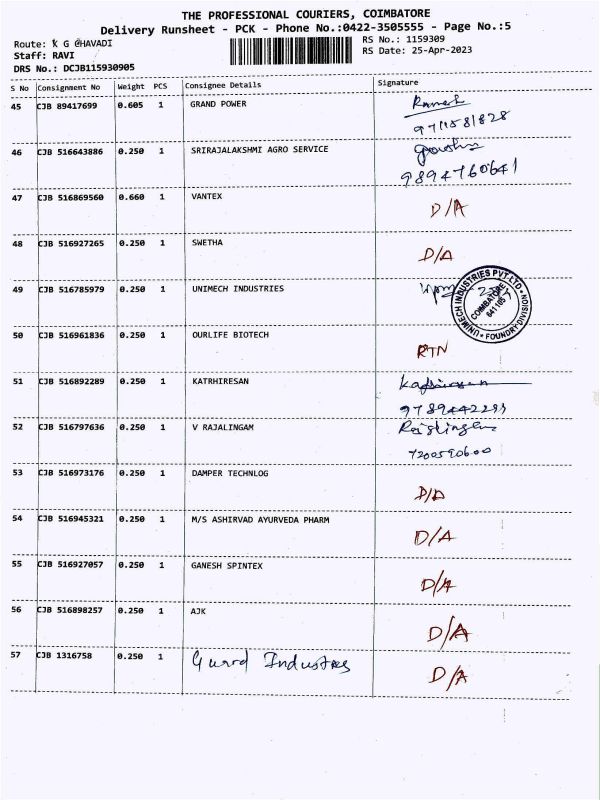 THE PROFESSIONAL COURIERS, COIMBATORE
Delivery Runsheet - PCK - Phone No.:0422-3505555 - Page No.:5
Route: K G CHAVADI
RS No.: 1159309
Staff: RAVI
RS Date: 25-Apr-2023
DRS No.: DCJB115930905
S No Consignment No Weight PCS Consignee Details Signature
45 CJB 89417699 0.605 1 GRAND POWER Ramesh
9711581828
46 CJB 516643886 0.250 1 SRIRAJALAKSHMI AGRO SERVICE
9894760641
47 CJB 516869560 0.660 1 VANTEX D/A
48 CJB 516927265 0.250 1 SWETHA D/A
49 CJB 516785979 0.250 1 UNIMECH INDUSTRIES
UNIMECH INDUSTRIES PVT.LTD * FOUNDRY DIVISION *
COIMBATORE
641105
50 CJB 516961836 0.250 1 OURLIFE BIOTECH RTN
51 CJB 516892289 0.250 1 KATRHIRESAN
52 CJB 516797636 0.250 1 V RAJALINGAM
7200590600
53 CJB 516973176 0.250 1 DAMPER TECHNLOG D/A
54 CJB 516945321 0.250 1 M/S ASHIRVAD AYURVEDA PHARM D/A
55 CJB 516927057 0.250 1 GANESH SPINTEX D/A
56 CJB 516898257 0.250 1 AJK D/A
57 CJB 1316758 0.250 1 Gurrd Industries D/A